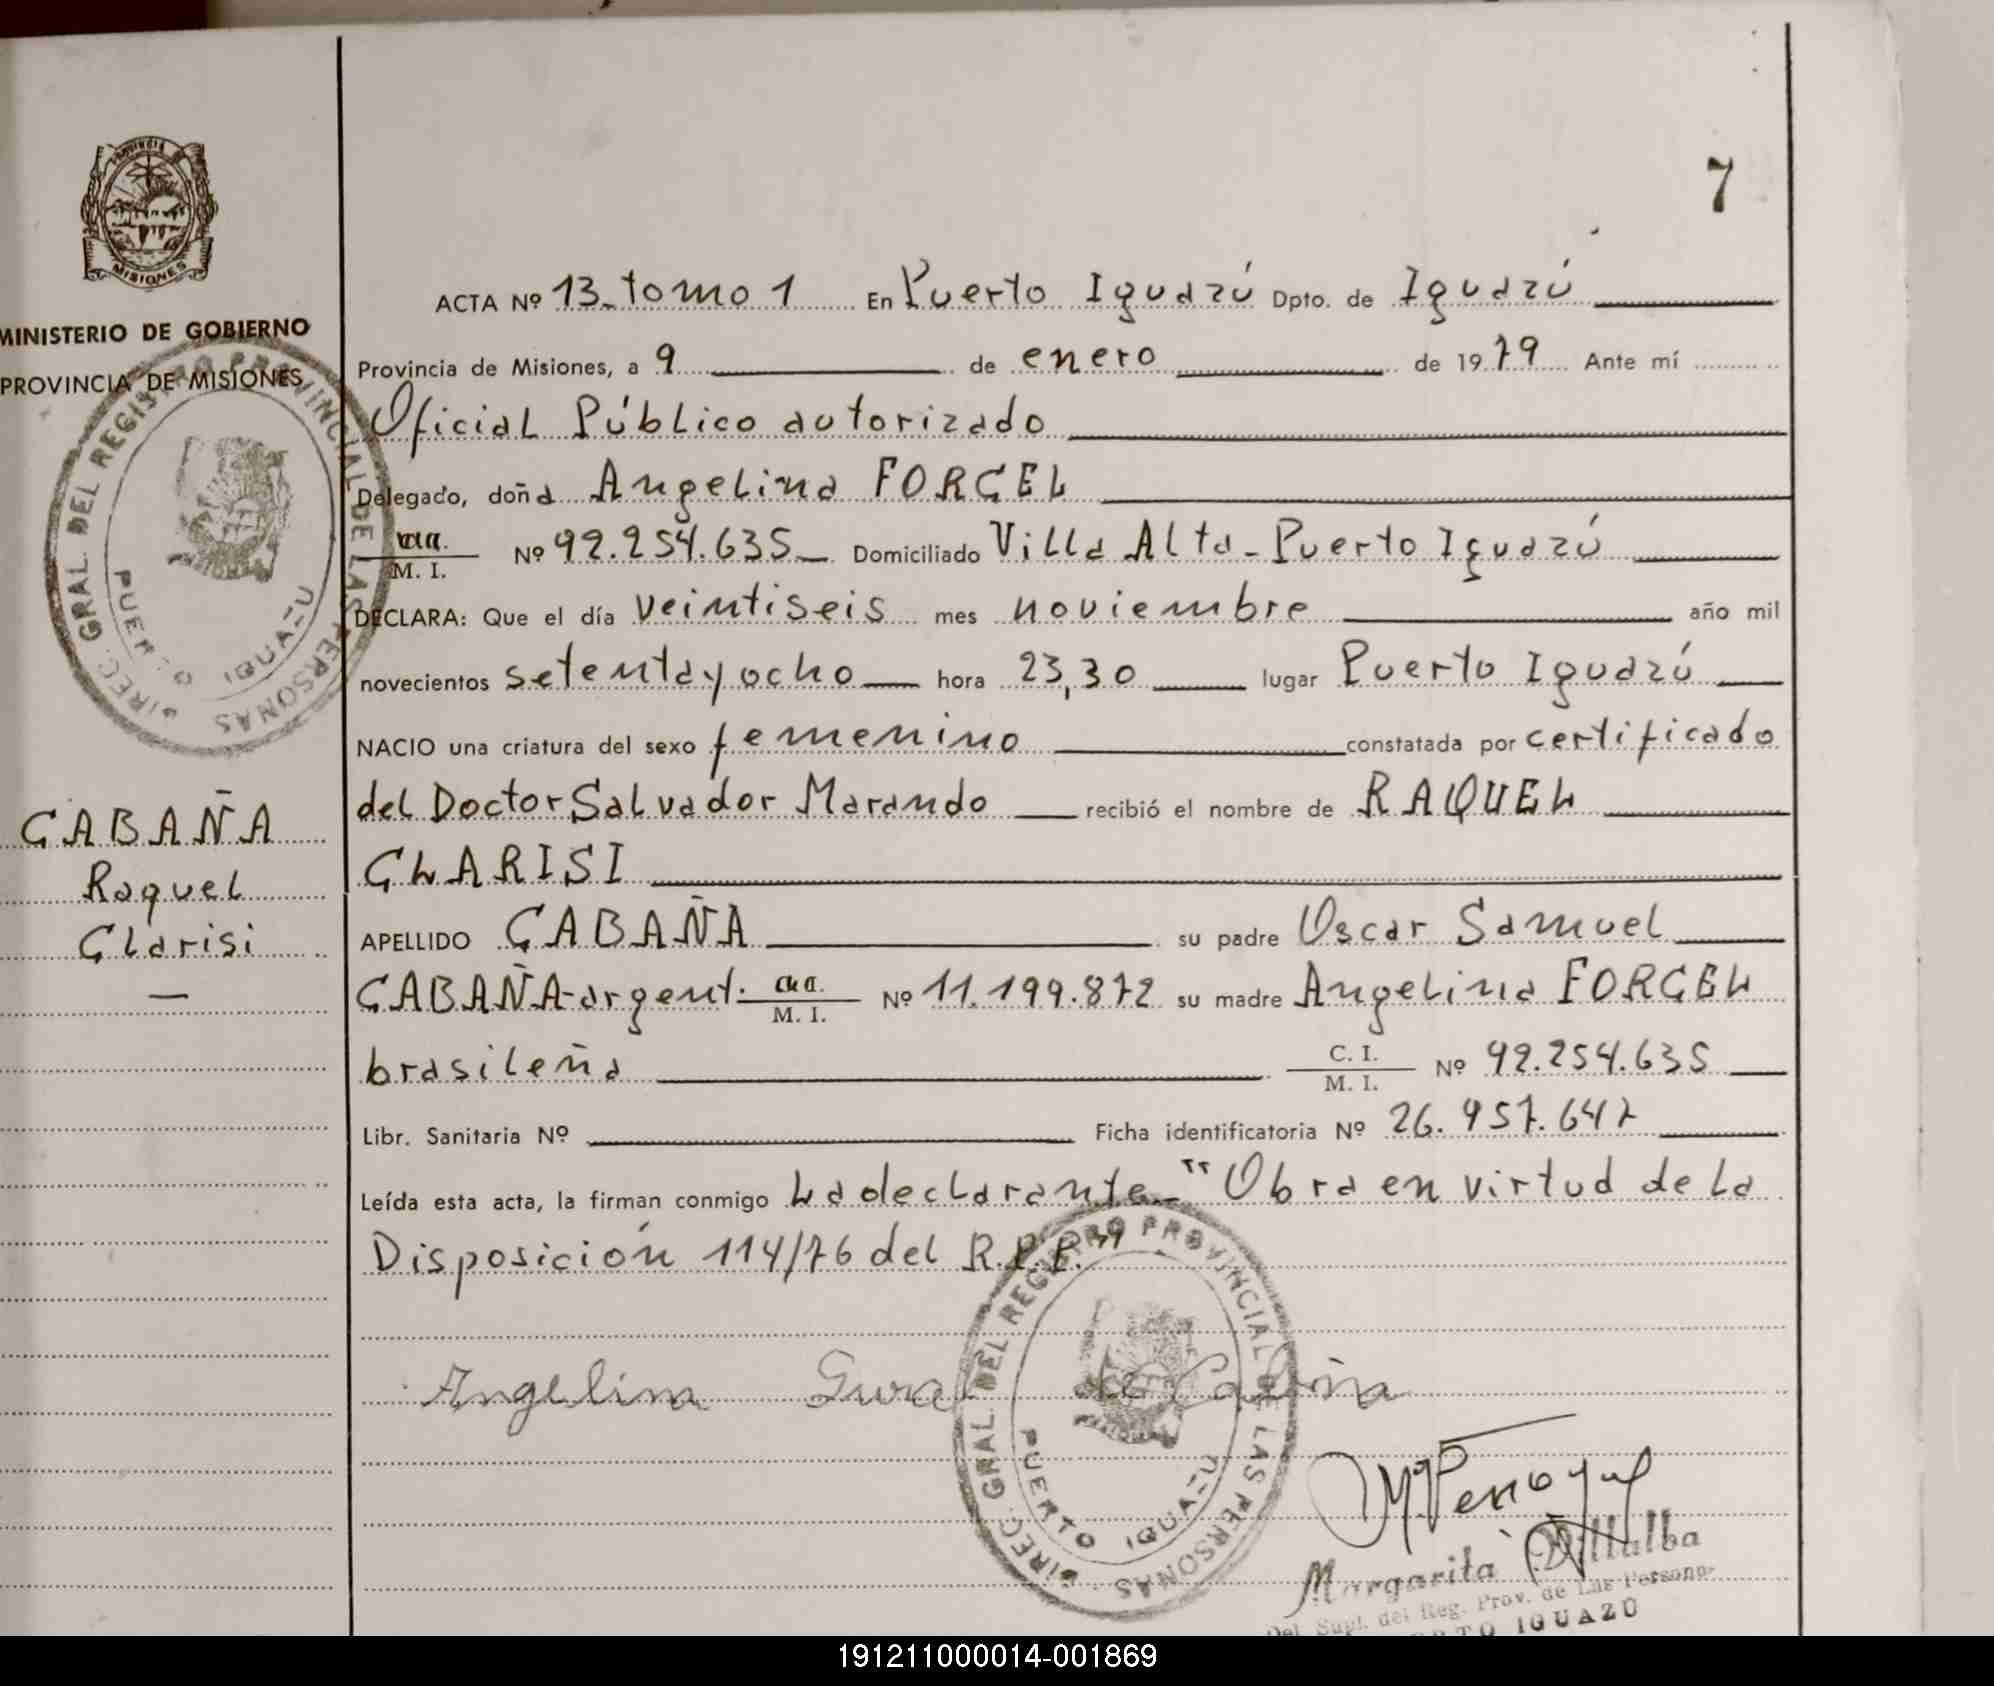 PROVINCIA
MISIONES
MINISTERIO DE GOBIERNO
PROVINCIA DE MISIONES
DIREC. GRAL. DEL REGISTRO PROVINCIAL DE LAS PERSONAS
PUERTO IGUAZU
CABAÑA
Raquel
Clarisi
—
7
ACTA Nº 13_ tomo 1 En Puerto Iguazú Dpto. de Iguazú
Provincia de Misiones, a 9 de enero de 1979 Ante mí
Oficial Público autorizado
Delegado, doña Angelina FORCEL
M. I. Nº 92.254.635_ Domiciliado Villa Alta - Puerto Iguazú
DECLARA: Que el día veintiseis mes noviembre año mil
novecientos setenta y ocho hora 23,30 lugar Puerto Iguazú
NACIO una criatura del sexo femenino constatada por certificado
del Doctor Salvador Marando recibió el nombre de RAQUEL
CLARISI
APELLIDO CABAÑA su padre Oscar Samuel
CABAÑA-argent. M. I. Nº 11.199.872 su madre Angelina FORCEL
brasileña C. I. M. I. Nº 92.254.635
Libr. Sanitaria Nº Ficha identificatoria Nº 26.957.647
Leída esta acta, la firman conmigo La declarante_ "Obra en virtud de la
Disposición 114/76 del R.P.P."
DIREC. GRAL. DEL REGISTRO PROVINCIAL DE LAS PERSONAS
PUERTO IGUAZU
Angelina de
Margarita Villalba
Del Supl. del Reg. Prov. de Las Personas
IGUAZÚ
191211000014-001869